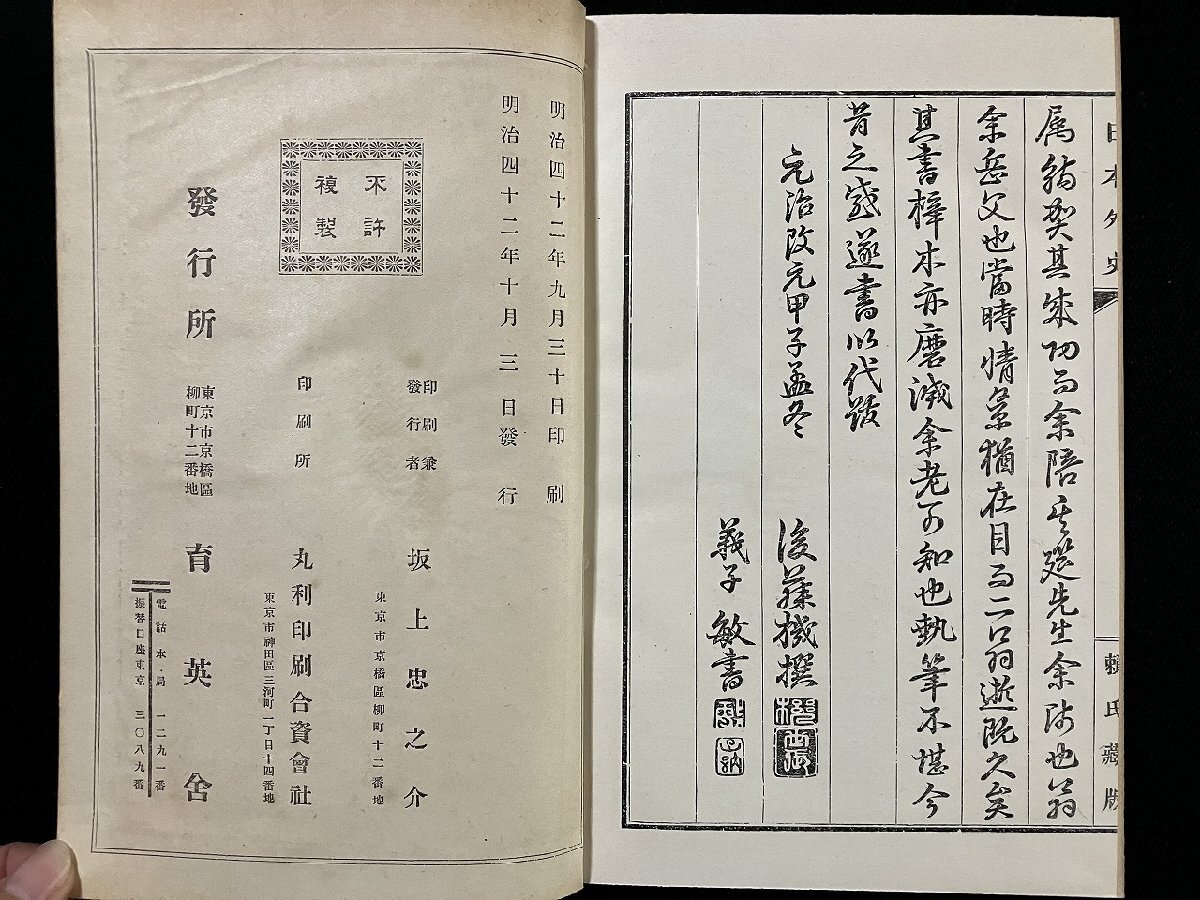 日本外史
頼氏蔵版
属翁契其成功而余陪其筵先生余師也翁
余岳父也當時情景猶在目而二翁逝既久矣
其書梓本亦磨滅余老可知也執筆不堪今
昔之感遂書以代跋
元治改元甲子孟冬
後藤機撰
義子敏書
明治四十二年九月三十日印刷
明治四十二年十月三日發行
不許
複製
印刷兼
發行者
坂上忠之介
東京市京橋區柳町十二番地
印刷所
丸利印刷合資會社
東京市神田區三河町一丁目十四番地
發行所
東京市京橋區
柳町十二番地
育英舍
電話本局 一二九一番
振替口座東京 三〇八九番